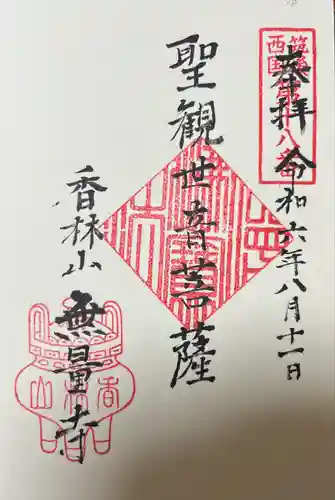 奉拝 令和六年八月十一日
聖観世音菩薩
香林山 無量寺